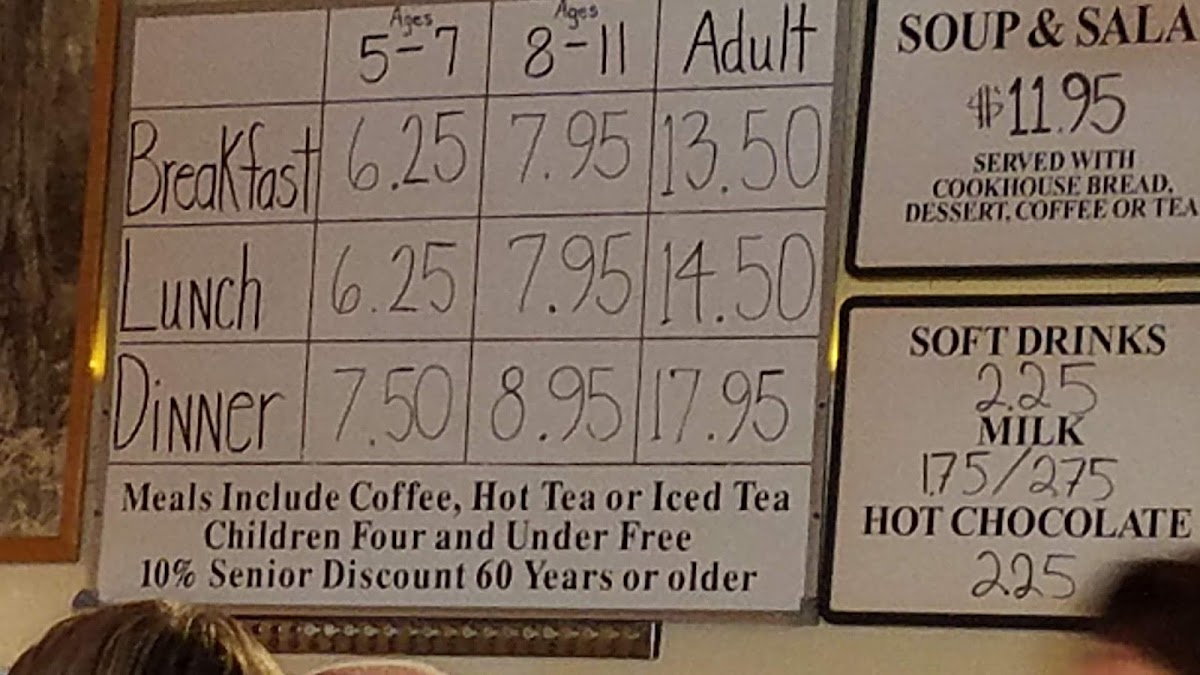 Ages Ages
5-7 8-11 Adult
Breakfast 6.25 7.95 13.50
Lunch 6.25 7.95 14.50
Dinner 7.50 8.95 17.95
Meals Include Coffee, Hot Tea or Iced Tea
Children Four and Under Free
10% Senior Discount 60 Years or older
SOUP & SALA
$11.95
SERVED WITH
COOKHOUSE BREAD,
DESSERT, COFFEE OR TEA
SOFT DRINKS
2.25
MILK
1.75/2.75
HOT CHOCOLATE
2.25